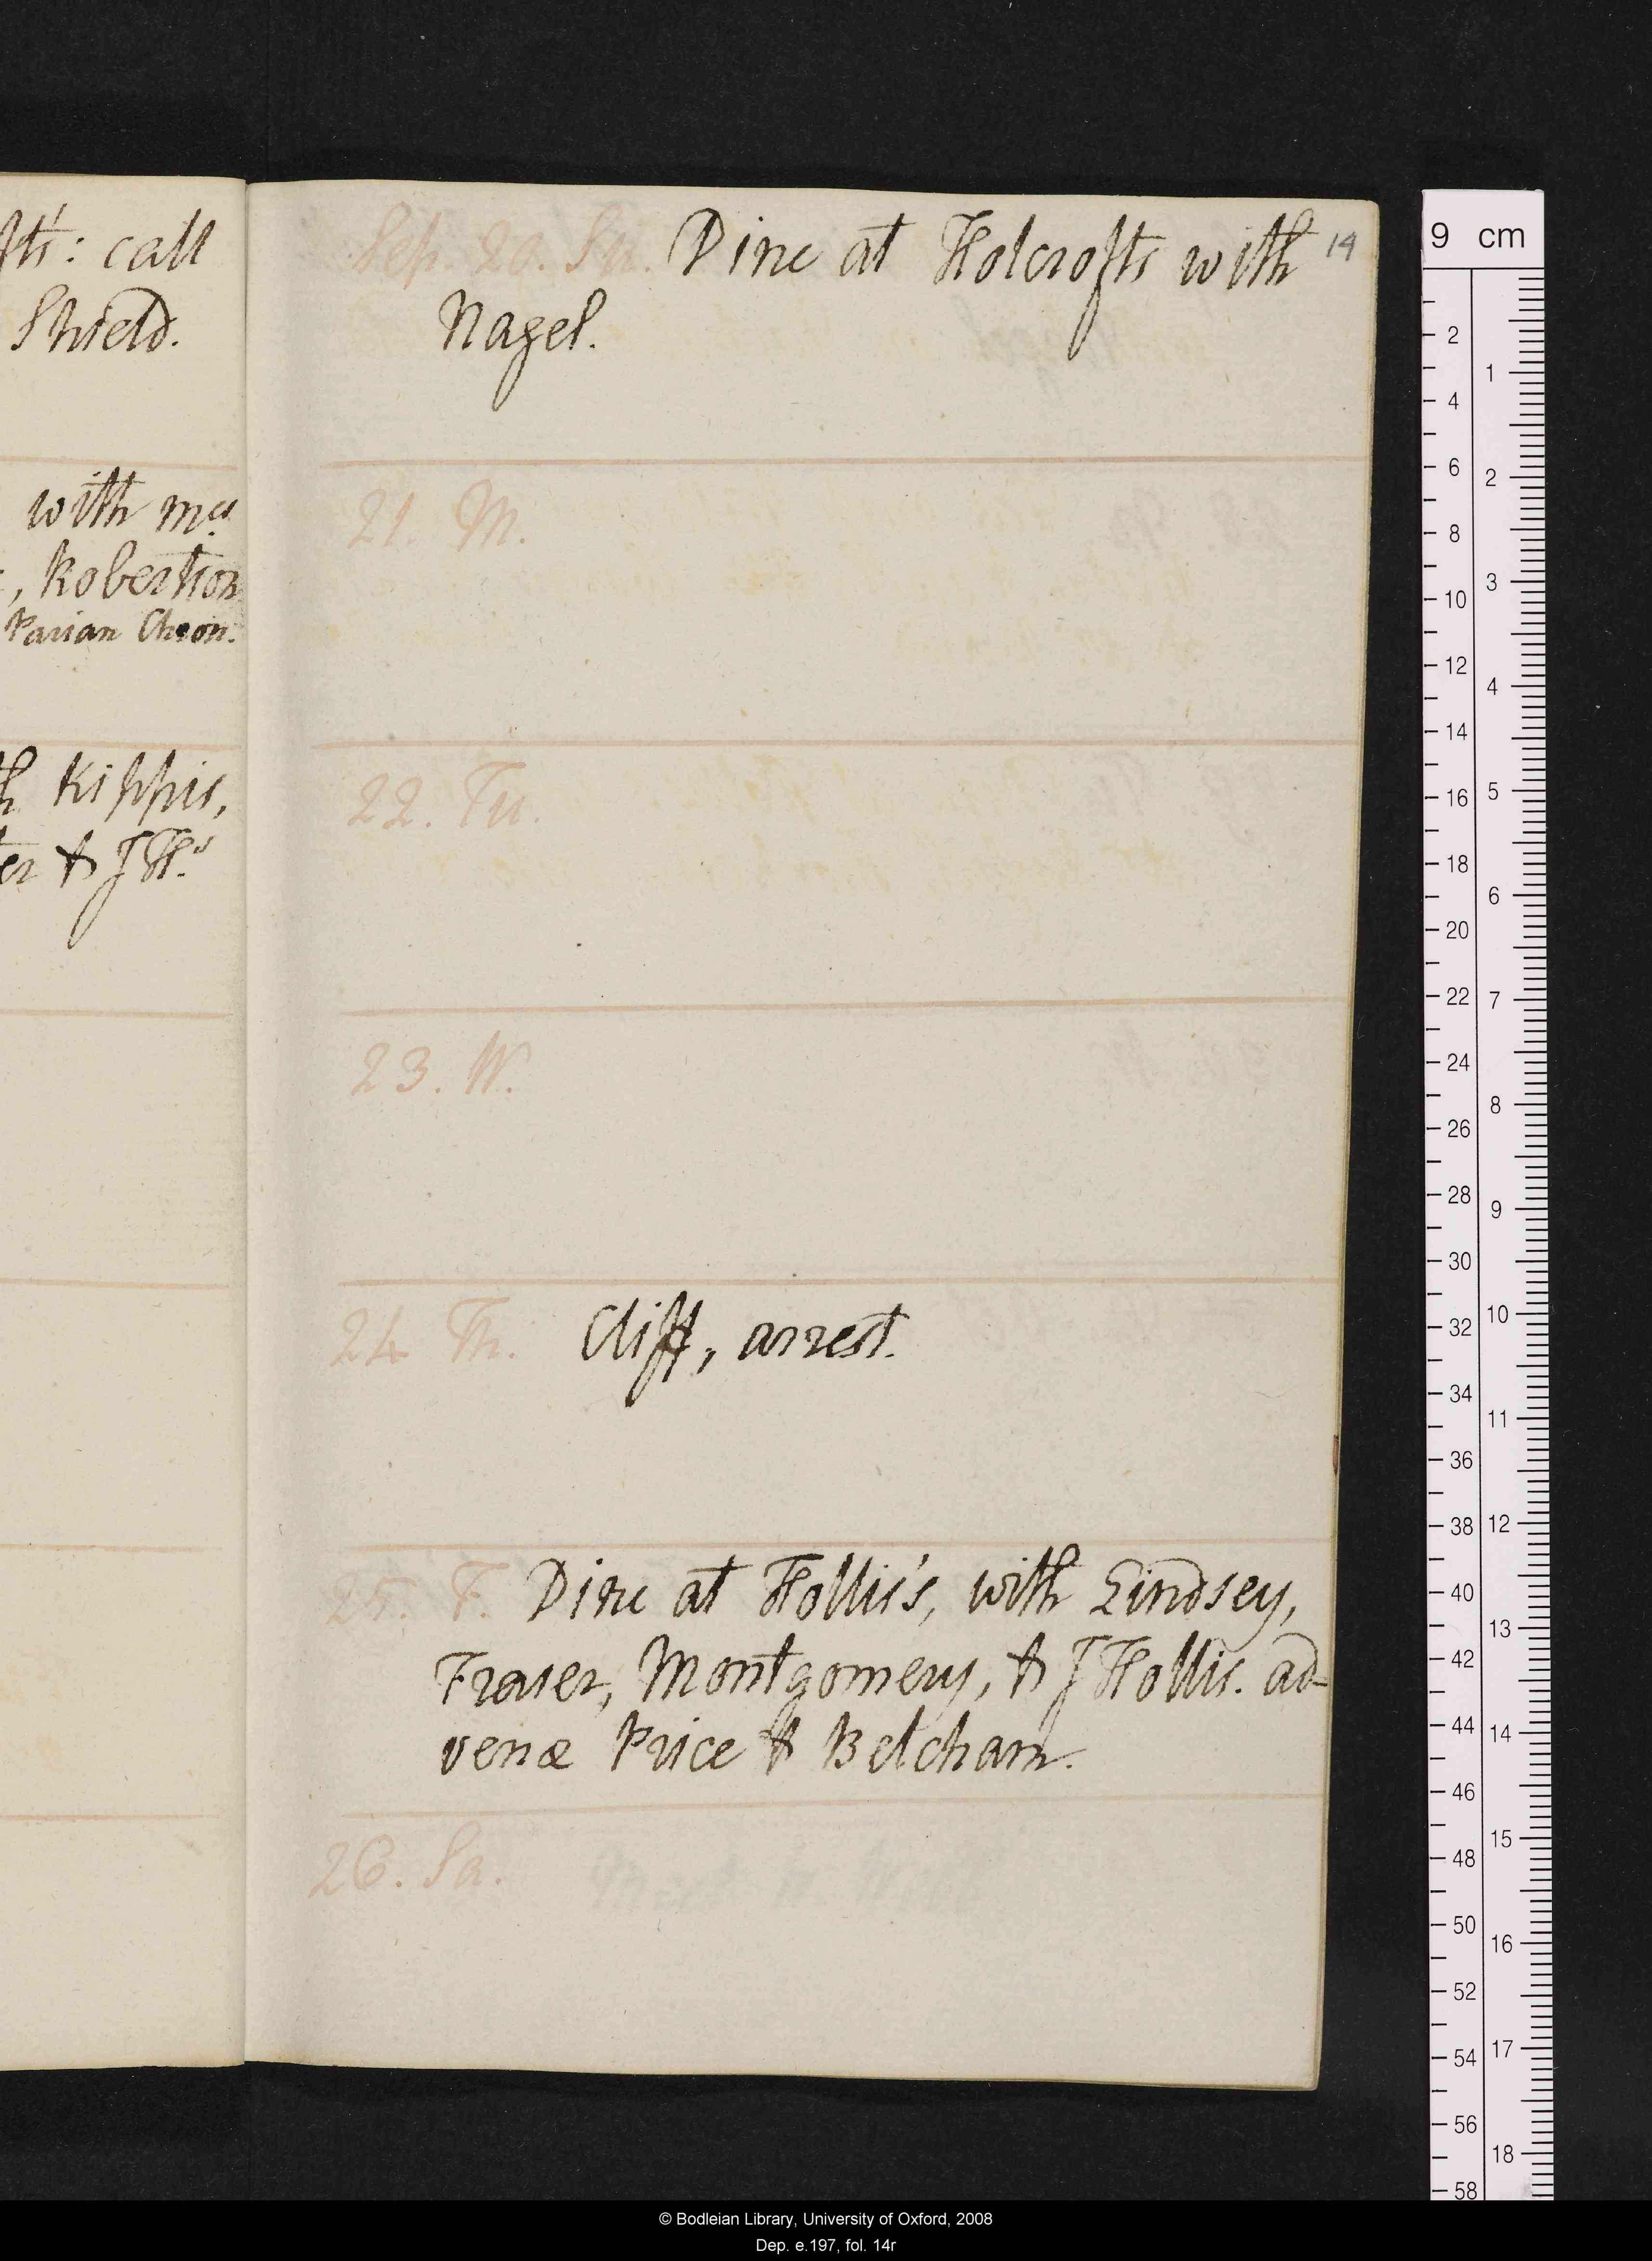 fts: call
Shield.
with mrs
, Robertson
Parian Chron.
h Kippis,
er & J Hs
Sep. 20. Su. Dine at Holcrofts with
Nagel.
14
21. M.
22. Tu.
23. W.
24 Th. Cliff, arrest.
25. F. Dine at Hollis's, with Lindsey,
Fraser, Montgomery, & J Hollis. ad-
venæ Price & Belcham.
26. Sa.
9 cm
2
4
6
8
10
12
14
16
18
20
22
24
26
28
30
32
34
36
38
40
42
44
46
48
50
52
54
56
58
1
2
3
4
5
6
7
8
9
10
11
12
13
14
15
16
17
18
© Bodleian Library, University of Oxford, 2008
Dep. e.197, fol. 14r